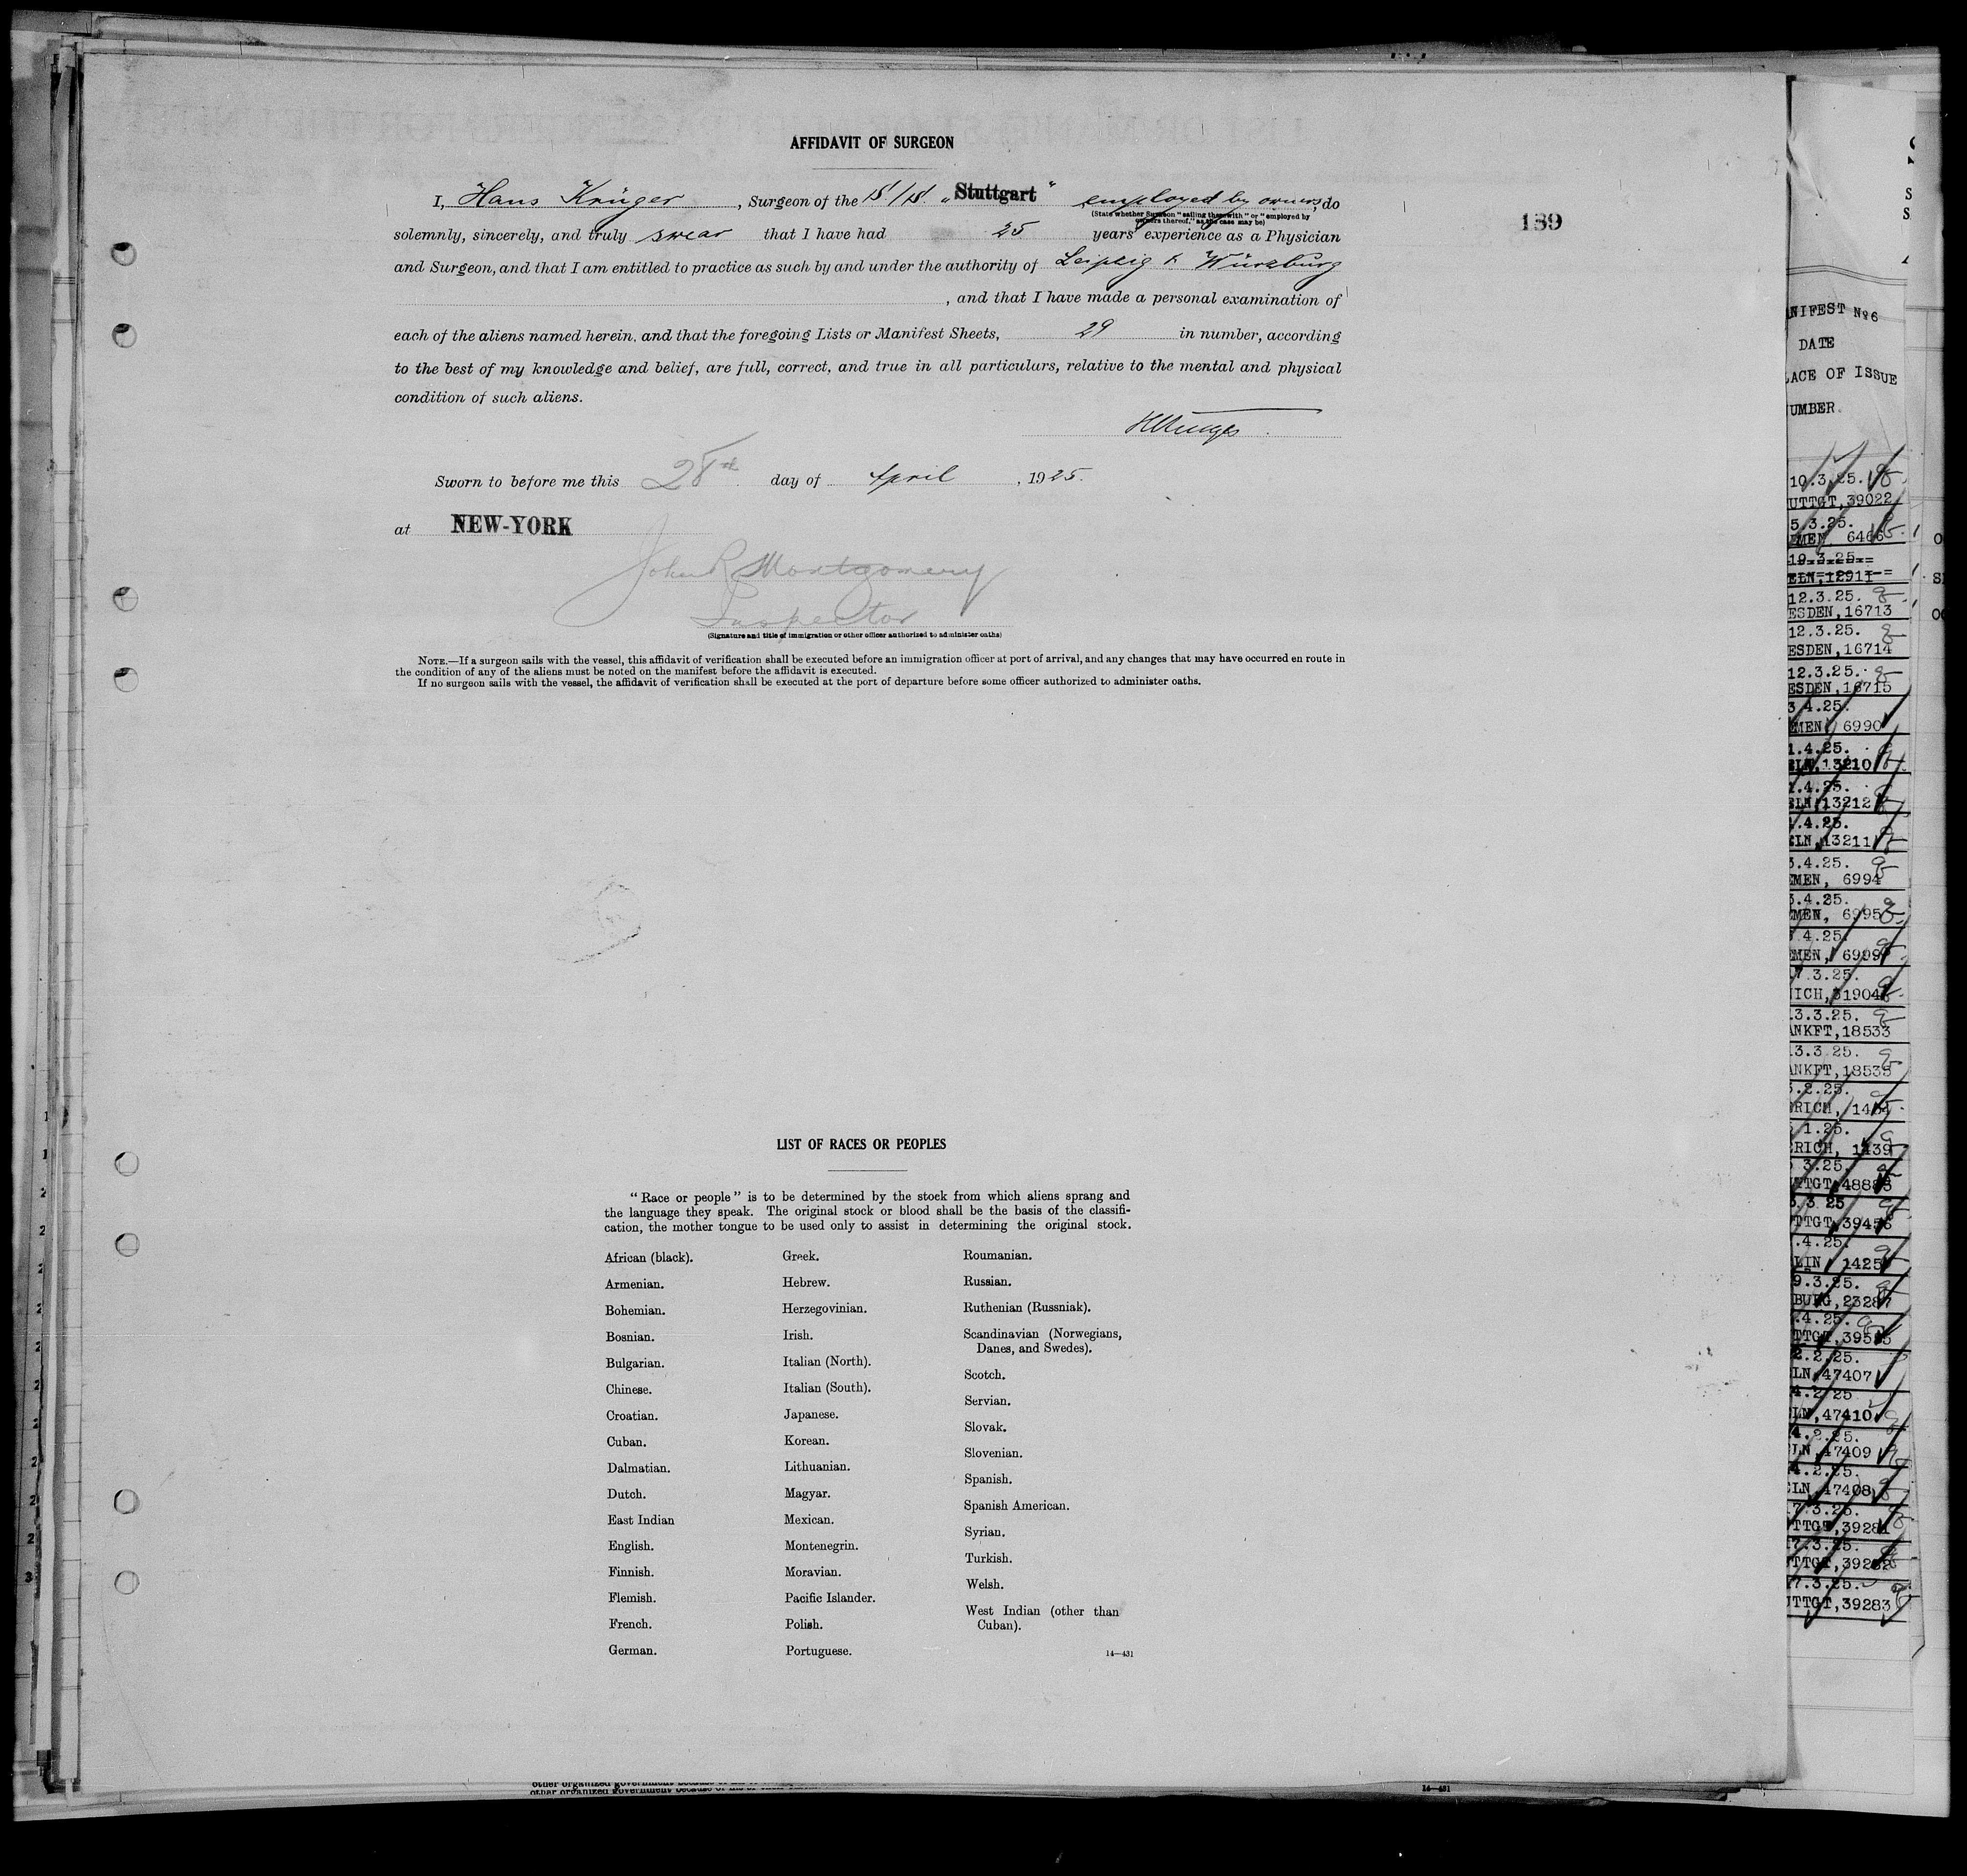 AFFIDAVIT OF SURGEON
I, Hans Krüger, Surgeon of the S/S. „Stuttgart" employed by owners, do
(State whether Surgeon "sailing therewith" or "employed by
owners thereof," as the case may be)
solemnly, sincerely, and truly swear that I have had 25 years' experience as a Physician
and Surgeon, and that I am entitled to practice as such by and under the authority of Leipzig & Würzburg
, and that I have made a personal examination of
each of the aliens named herein, and that the foregoing Lists or Manifest Sheets, 29 in number, according
to the best of my knowledge and belief, are full, correct, and true in all particulars, relative to the mental and physical
condition of such aliens.
Sworn to before me this 28th day of April, 1925.
at NEW-YORK
John R Montgomery
Inspector
(Signature and title of immigration or other officer authorized to administer oaths)
NOTE.—If a surgeon sails with the vessel, this affidavit of verification shall be executed before an immigration officer at port of arrival, and any changes that may have occurred en route in
the condition of any of the aliens must be noted on the manifest before the affidavit is executed.
If no surgeon sails with the vessel, the affidavit of verification shall be executed at the port of departure before some officer authorized to administer oaths.
189
LIST OF RACES OR PEOPLES
"Race or people" is to be determined by the stock from which aliens sprang and
the language they speak. The original stock or blood shall be the basis of the classifi-
cation, the mother tongue to be used only to assist in determining the original stock.
African (black).
Armenian.
Bohemian.
Bosnian.
Bulgarian.
Chinese.
Croatian.
Cuban.
Dalmatian.
Dutch.
East Indian
English.
Finnish.
Flemish.
French.
German.
Greek.
Hebrew.
Herzegovinian.
Irish.
Italian (North).
Italian (South).
Japanese.
Korean.
Lithuanian.
Magyar.
Mexican.
Montenegrin.
Moravian.
Pacific Islander.
Polish.
Portuguese.
Roumanian.
Russian.
Ruthenian (Russniak).
Scandinavian (Norwegians,
Danes, and Swedes).
Scotch.
Servian.
Slovak.
Slovenian.
Spanish.
Spanish American.
Syrian.
Turkish.
Welsh.
West Indian (other than
Cuban).
14—431
NIFEST No6
DATE
ACE OF ISSUE
UMBER.
10.3.25.
UTTGT,39022
5.3.25.
EMEN 6466
19.3.25.
ELN,12911
12.3.25.
ESDEN,16713
12.3.25.
ESDEN,16714
12.3.25.
ESDEN,16715
3.4.25.
EMEN, 6990
1.4.25.
ELN,13210
1.4.25.
ELN,13212
.4.25.
ELN,13211
3.4.25.
EMEN, 6994
3.4.25.
EMEN, 6995
4.25.
EMEN, 6999
7.3.25.
NICH,31904
13.3.25.
ANKFT,18533
13.3.25.
ANKFT,18538
.2.25.
RICH,
1.25.
RICH, 1439
3.25.
TTGT,48883
3.25
TTGT,39456
.4.25.
LIN 1425
9.3.25.
BURG,23287
.4.25.
TTGT,39515
2.2.25.
LN,47407
4.2.25
LN,47410
4.2.25.
LN,47409
4.2.25.
LN,47408
7.3.25.
TTGT,39281
17.3.25.
TTGT,39282
17.3.25.
UTTGT,39283
other organized government because of
14—431